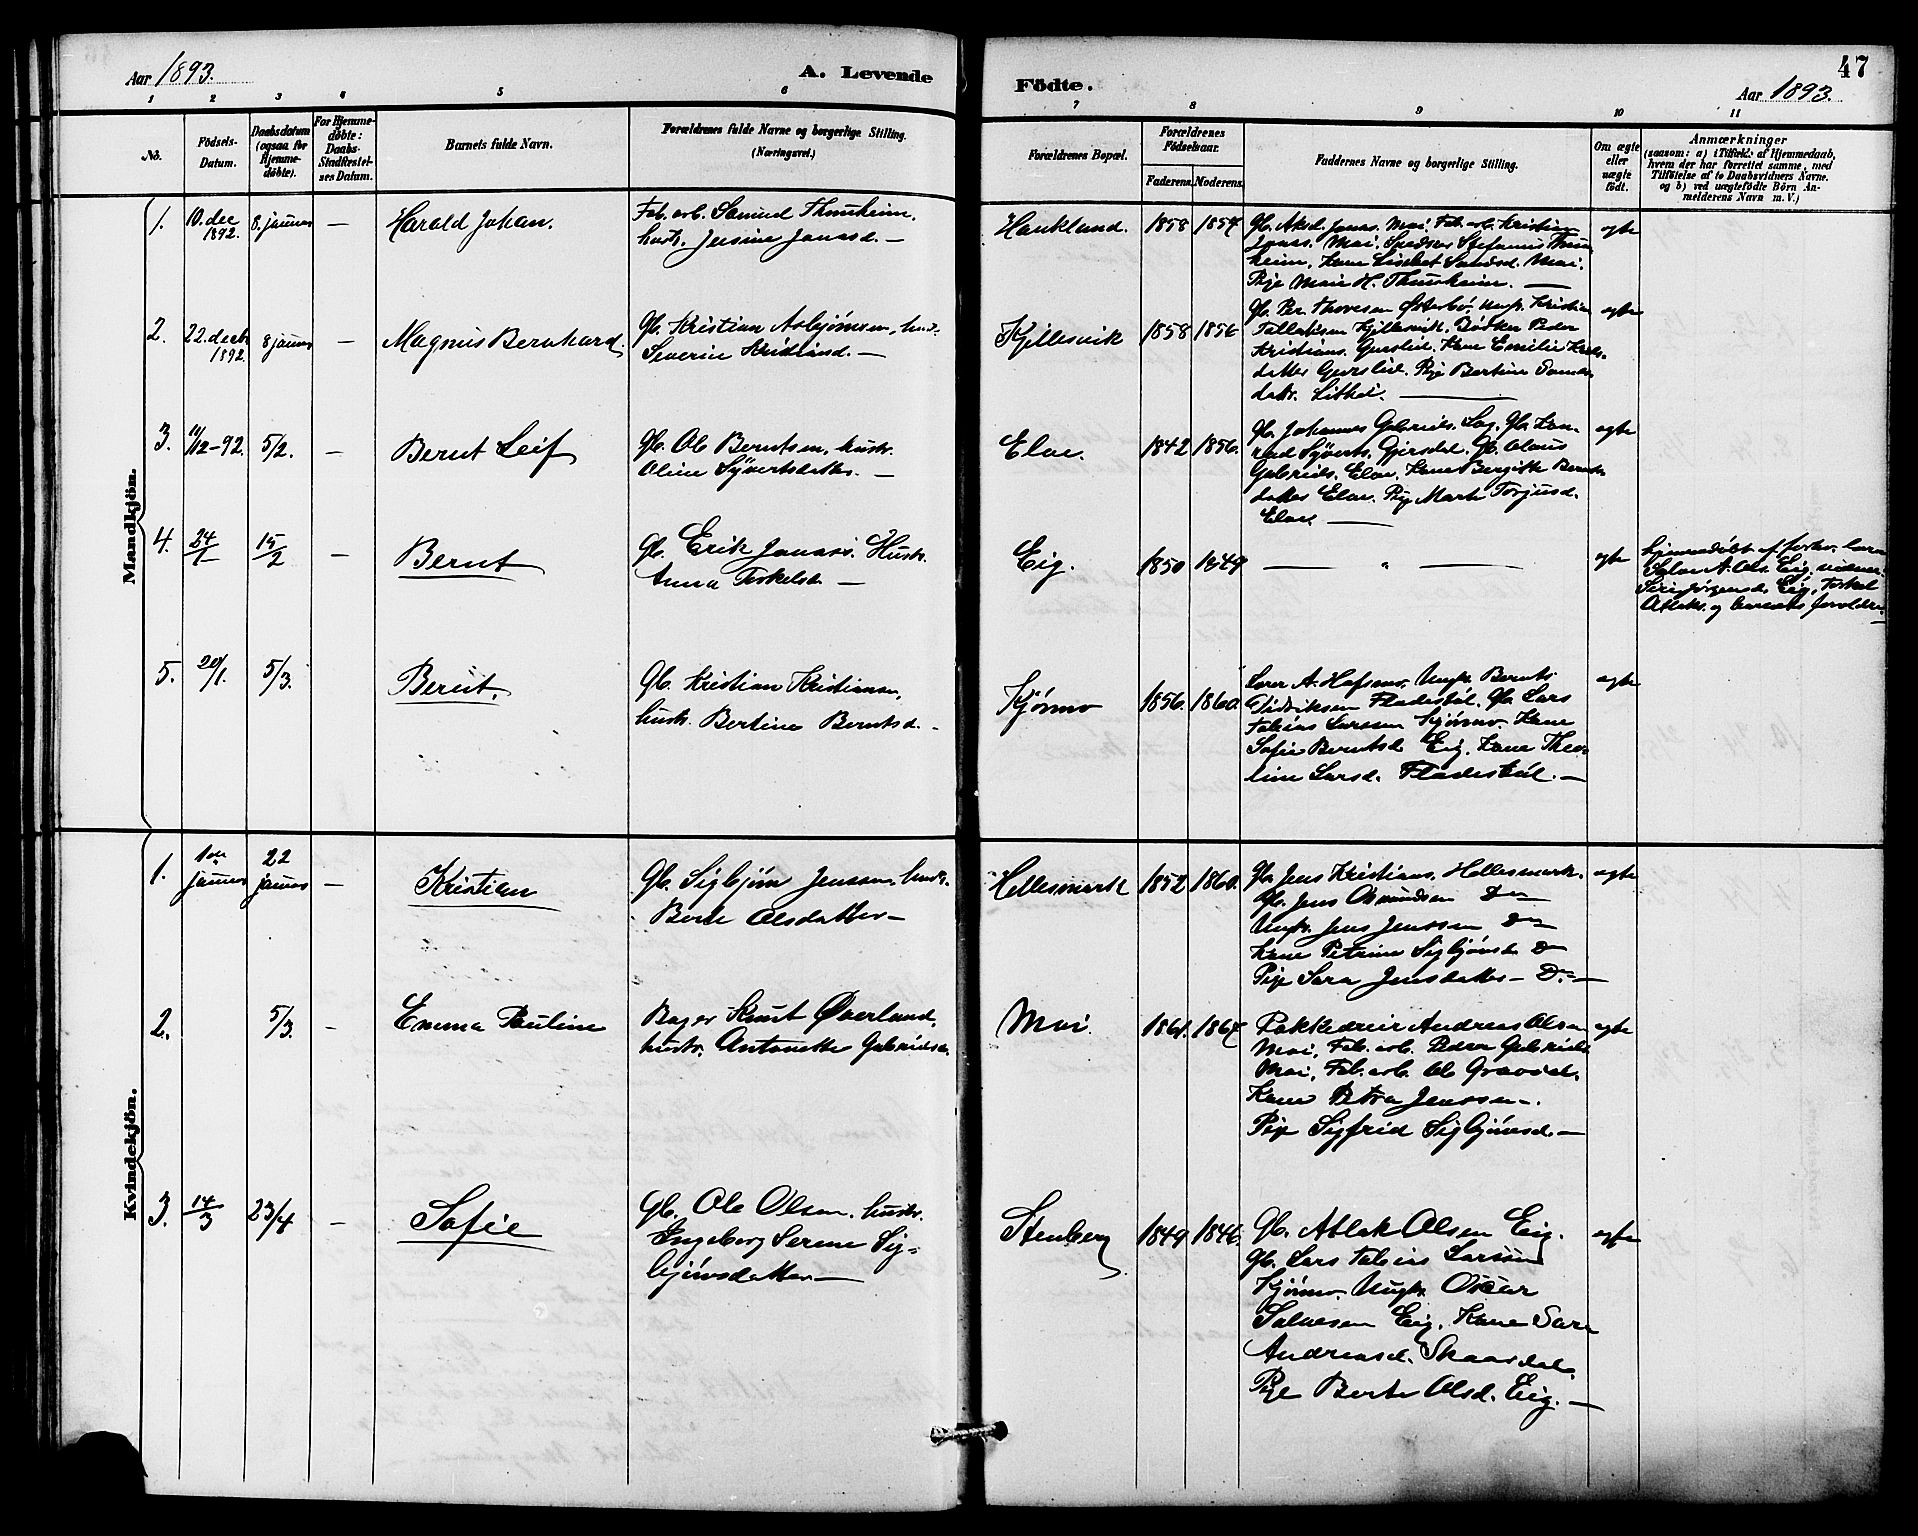 Aar 1893.
A. Levende
Födte.
47
Aar 1893.
1 2 3 4 5 6 7 8 9 10 11
No.
Födsels-
Datum.
Daabsdatum
(ogsaa for
Hjemme-
döbte).
For Hjemme-
döbte:
Daabs-
Stadfæstel-
ses Datum.
Barnets fulde Navn.
Forældrenes fulde Navne og borgerlige Stilling.
(Næringsvei.)
Forældrenes Bopæl.
Forældrenes
Födselsaar.
Faderens. Moderens.
Faddernes Navne og borgerlige Stilling.
Om ægte
eller
uægte
födt.
Anmærkninger
(saasom: a) i Tilfælde af Hjemmedaab,
hvem der har forrettet samme, med
Tilföielse af to Daabsvidners Navne,
og b) ved uægtefödte Börn An-
melderens Navn m. V.)
Mandkjön.
1. 10. dec 1892. 8. januar —
Harald Johan.
Fab. arb. Samuel Thunheim,
hustr. Jensine Jonasd. —
Haukland. 1858 1857
Gb. Aksd. Jonas. Moi. Fab. arb. Kristian
Jonas. Moi. Stefanus Thun-
heim, Kone Lisebet Moi.
Pige Marie H. Thunheim. —
ægte
2. 22. decb 1892. 8 januar —
Magnus Bernhard.
Gb. Kristian Asbjörnsen, hust.
Severine —
Kjellesvik 1858 1856
Gb. Per Thoresen Österbö, Ungk. Kristian
Tallaksen Kjellesvik. Bödker Peder
Kristians. Gurslid. Kone Emilie
datter Gurslid. Pige Bertine
datr. —
ægte
3. 11/12-92. 5/2. —
Bernt Leif
Gb. Ole Berntsen, hustr.
Oline Syvertsdatter. —
Elve. 1842 1856.
Gb. Johannes Gabriels. Gb. Kon-
rad Syverts. Gjersdal. Gb. Olaus
Gabriels. Elve. Kone Bergitte Bernts-
datter Elve. Pige Marte Torjusd.
Elve. —
ægte
4. 24/1 15/2 —
Bernt
Gb. Erik Jonass. Hustr.
Anna Torkelsd —
Eig. 1850 1849
— " —
ægte
hjemmedöbt af
Salve A. Ols. Eig, vidner
Siri Jörgensd. Eig, Torkel
Atlaks. og barnets forældre. —
5. 20/1. 5/3.
Bernt.
Gb. Kristian Kristiansen,
hustr. Bertine Berntsd. —
Kjörmo 1856. 1860.
Lærer A. Hafsmo, Ungk. Bernt
Didriksen Fladestöl. Gb. Lars
Tobias Larssen Kjörmo. Kone
Sofie Berntsd Eig. Kone Theo-
line Larsd. Fladestöl. —
ægte
Kvindekjön.
1. 1ste januar 22 januar —
Kristian
Gb. Sigbjörn Jenssen, hustr.
Berte Olsdatter —
Hellesmark 1852 1860.
Gb. Jens Kristians. Hellesmark.
Gb. Jens Osmundsen Do
Ungk. Jens Jenssen Do
Kone Petrine Sigbjörnsd Do
Pige Sara Jensdatter — Do —
ægte
2. 5/3. —
Emma Pauline
Bager Knut Överland,
hustr. Antonette Gabrielsen.
Moi. 1861. 1867
Andreas Olsen
Moi, Fab. arb. Peder Gabriels.
Moi, Fab. arb. Ole
Kone Petra Jenssen —.
Pige Sigfrid Sigbjörnsd. —
ægte
3. 14/3 23/4 —
Sofie
Gb. Ole Olsen, hustr.
Engeborg Serene Sig-
björnsdatter —
Stenberg 1849 1846.
Gb. Atlak Olsen Eig.
Gb. Lars Tobias Larssen
Kjörmo. Ungk. Oscar
Salvesen Eig. Kone Sara
Andreasd. Skaardal.
Pige Berte Olsd. Eig. —
ægte